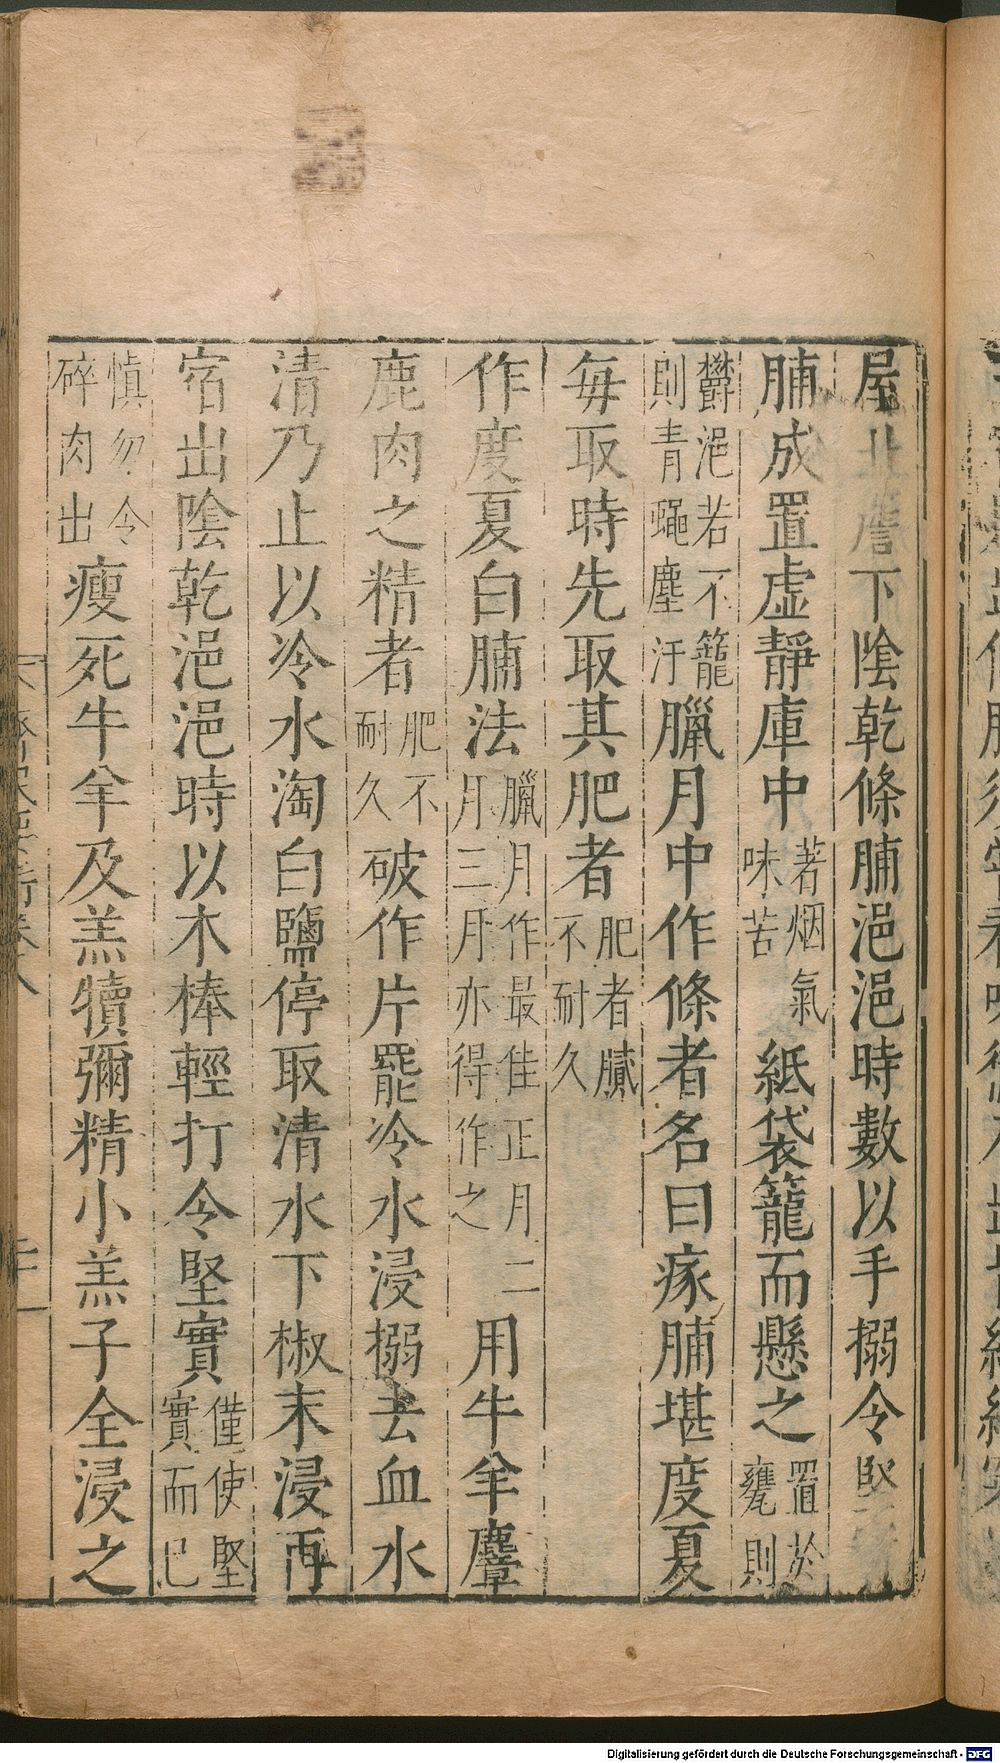 屋北簷下陰乾條脯浥浥時數以手搦令堅
脯成置虛靜庫中著烟氣味苦紙袋籠而懸之置於甕則
鬱浥若不籠則青蠅塵汙臘月中作條者名曰瘃脯堪度夏
每取時先取其肥者肥者膩不耐久
作度夏白脯法臘月作最佳正月二月三月亦得作之用牛羊麞
鹿肉之精者肥不耐久破作片罷冷水浸搦去血水
清乃止以冷水淘白鹽停取清水下椒末浸再
宿出陰乾浥浥時以木棒輕打令堅實僅使堅實而已
慎勿令碎肉出瘦死牛羊及羔犢彌精小羔子全浸之
齊民要術卷八
Digitalisierung gefördert durch die Deutsche Forschungsgemeinschaft - DFG